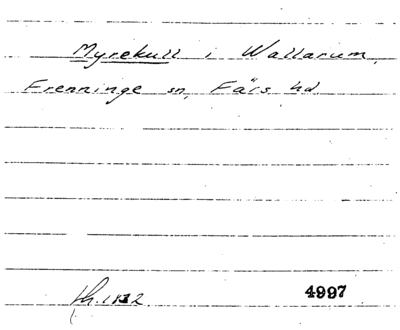 Myrekull i Wallarum,
Frenninge sn, Färs hd.
4997